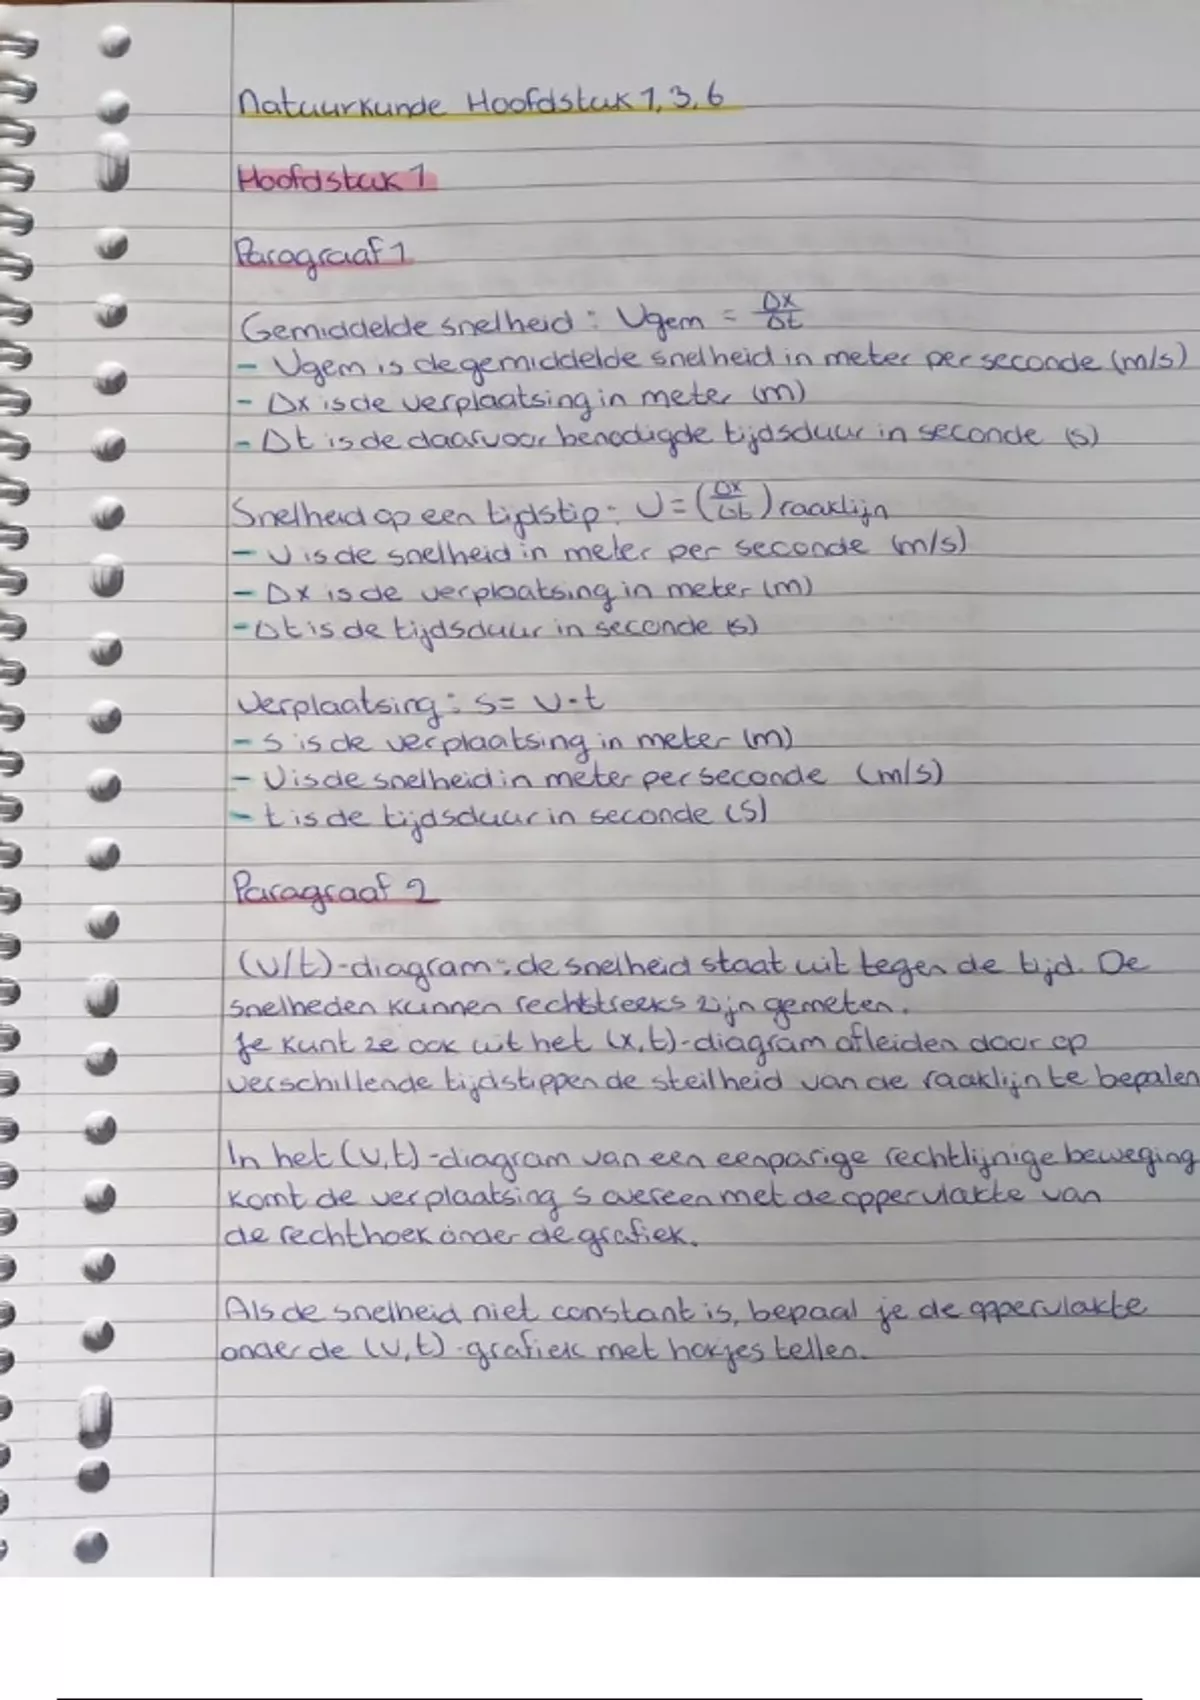 Natuurkunde Hoofdstuk 1, 3, 6
Hoofdstuk 1
Paragraaf 1
Gemiddelde snelheid: Vgem = Δx/Δt
- Vgem is de gemiddelde snelheid in meter per seconde (m/s)
- Δx is de verplaatsing in meter (m)
- Δt is de daarvoor benodigde tijdsduur in seconde (s)
Snelheid op een tijdstip: V = (Δx/Δt) raaklijn
- V is de snelheid in meter per seconde (m/s)
- Δx is de verplaatsing in meter (m)
- Δt is de tijdsduur in seconde (s)
Verplaatsing: s = v·t
- s is de verplaatsing in meter (m)
- V is de snelheid in meter per seconde (m/s)
- t is de tijdsduur in seconde (s)
Paragraaf 2
(v/t)-diagram: de snelheid staat uit tegen de tijd. De
snelheden kunnen rechtstreeks zijn gemeten.
Je kunt ze ook uit het (x,t)-diagram afleiden door op
verschillende tijdstippen de steilheid van de raaklijn te bepalen
In het (v,t)-diagram van een eenparige rechtlijnige beweging
komt de verplaatsing s overeen met de oppervlakte van
de rechthoek onder de grafiek.
Als de snelheid niet constant is, bepaal je de oppervlakte
onder de (v,t)-grafiek met hokjes tellen.